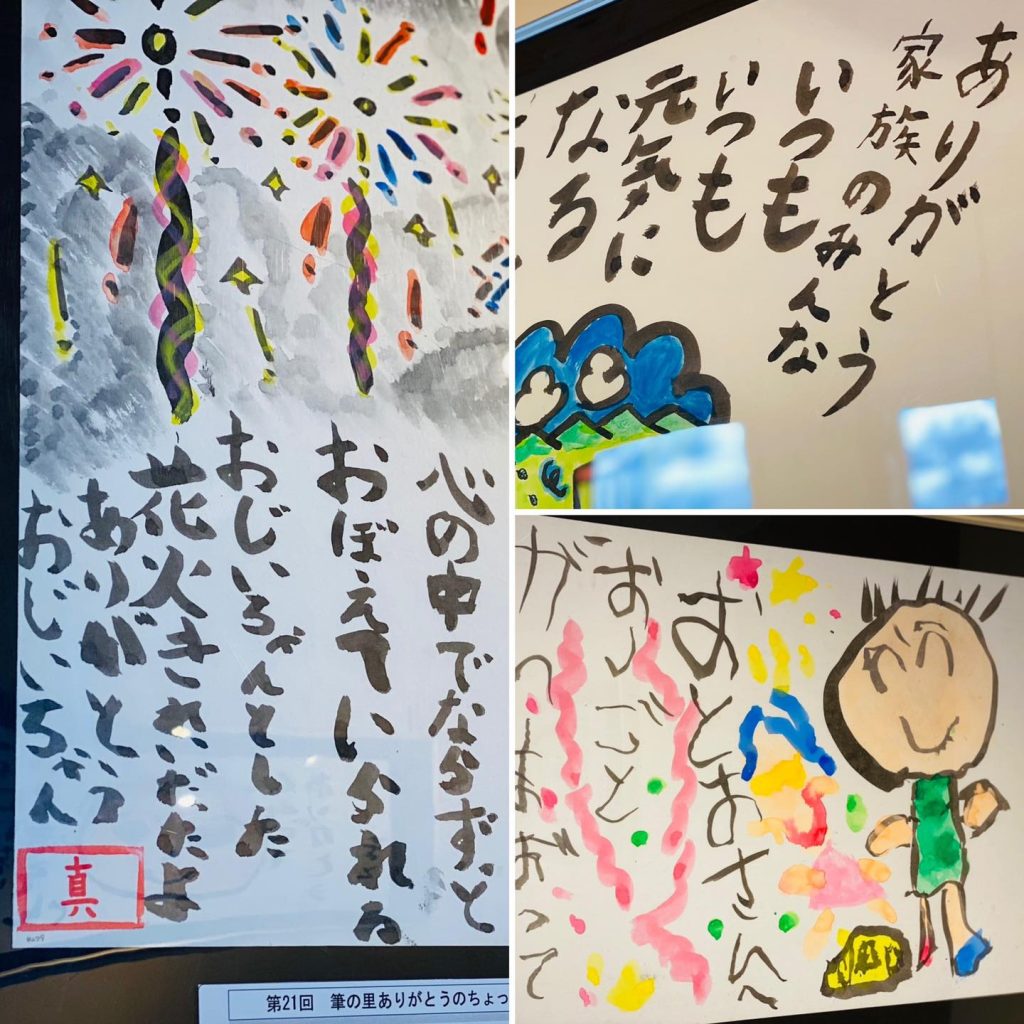 心の中でならずっと
おぼえていられる
おじいちゃんとした
花火きれいだったよ
ありがとう
おじいちゃん
真
第21回 筆の里ありがとうのちょっ
ありがとう
家族のみんな
いつも
いつも
元気に
なる
おとおさんへ
おしごと
が